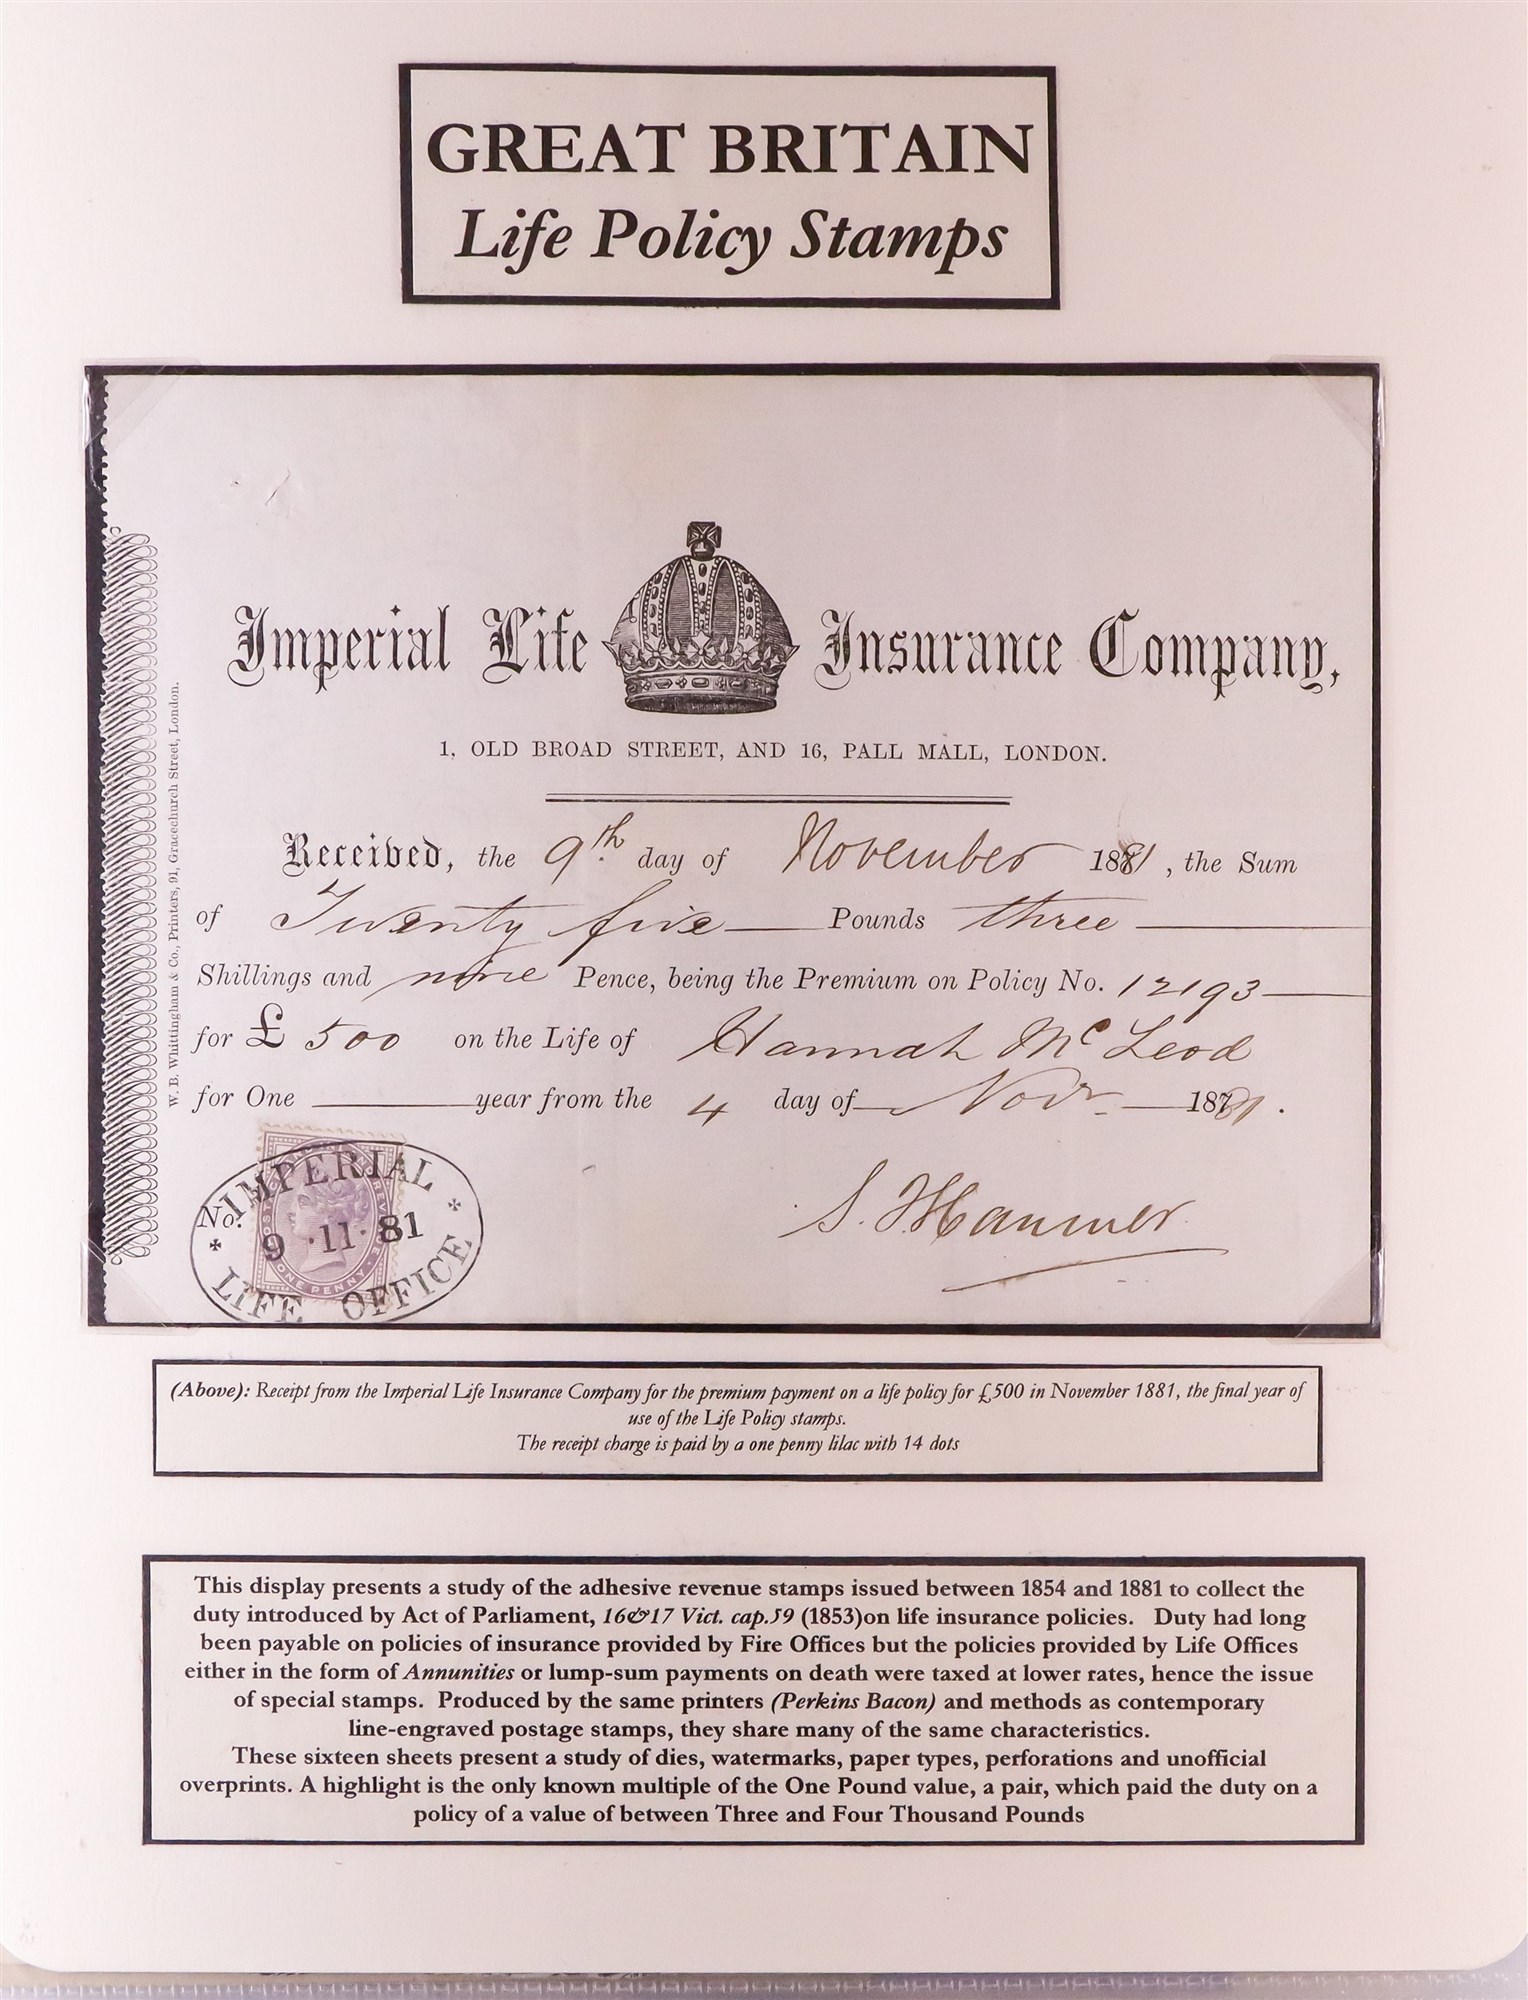 GREAT BRITAIN
Life Policy Stamps
Imperial Life Insurance Company,
1, OLD BROAD STREET, AND 16, PALL MALL, LONDON.
Received, the 9th day of November 1881, the Sum
of Twenty five Pounds three
Shillings and nine Pence, being the Premium on Policy No. 12193
for £ 500 on the Life of Hannah Mc Leod
for One year from the 4 day of Novr 1881.
W. B. Whittingham & Co., Printers, 91, Gracechurch Street, London.
No.
IMPERIAL
9 · 11 · 81
LIFE OFFICE
ONE PENNY
S. Hanmer
(Above): Receipt from the Imperial Life Insurance Company for the premium payment on a life policy for £500 in November 1881, the final year of
use of the Life Policy stamps.
The receipt charge is paid by a one penny lilac with 14 dots
This display presents a study of the adhesive revenue stamps issued between 1854 and 1881 to collect the
duty introduced by Act of Parliament, 16&17 Vict. cap.59 (1853)on life insurance policies. Duty had long
been payable on policies of insurance provided by Fire Offices but the policies provided by Life Offices
either in the form of Annunities or lump-sum payments on death were taxed at lower rates, hence the issue
of special stamps. Produced by the same printers (Perkins Bacon) and methods as contemporary
line-engraved postage stamps, they share many of the same characteristics.
These sixteen sheets present a study of dies, watermarks, paper types, perforations and unofficial
overprints. A highlight is the only known multiple of the One Pound value, a pair, which paid the duty on a
policy of a value of between Three and Four Thousand Pounds